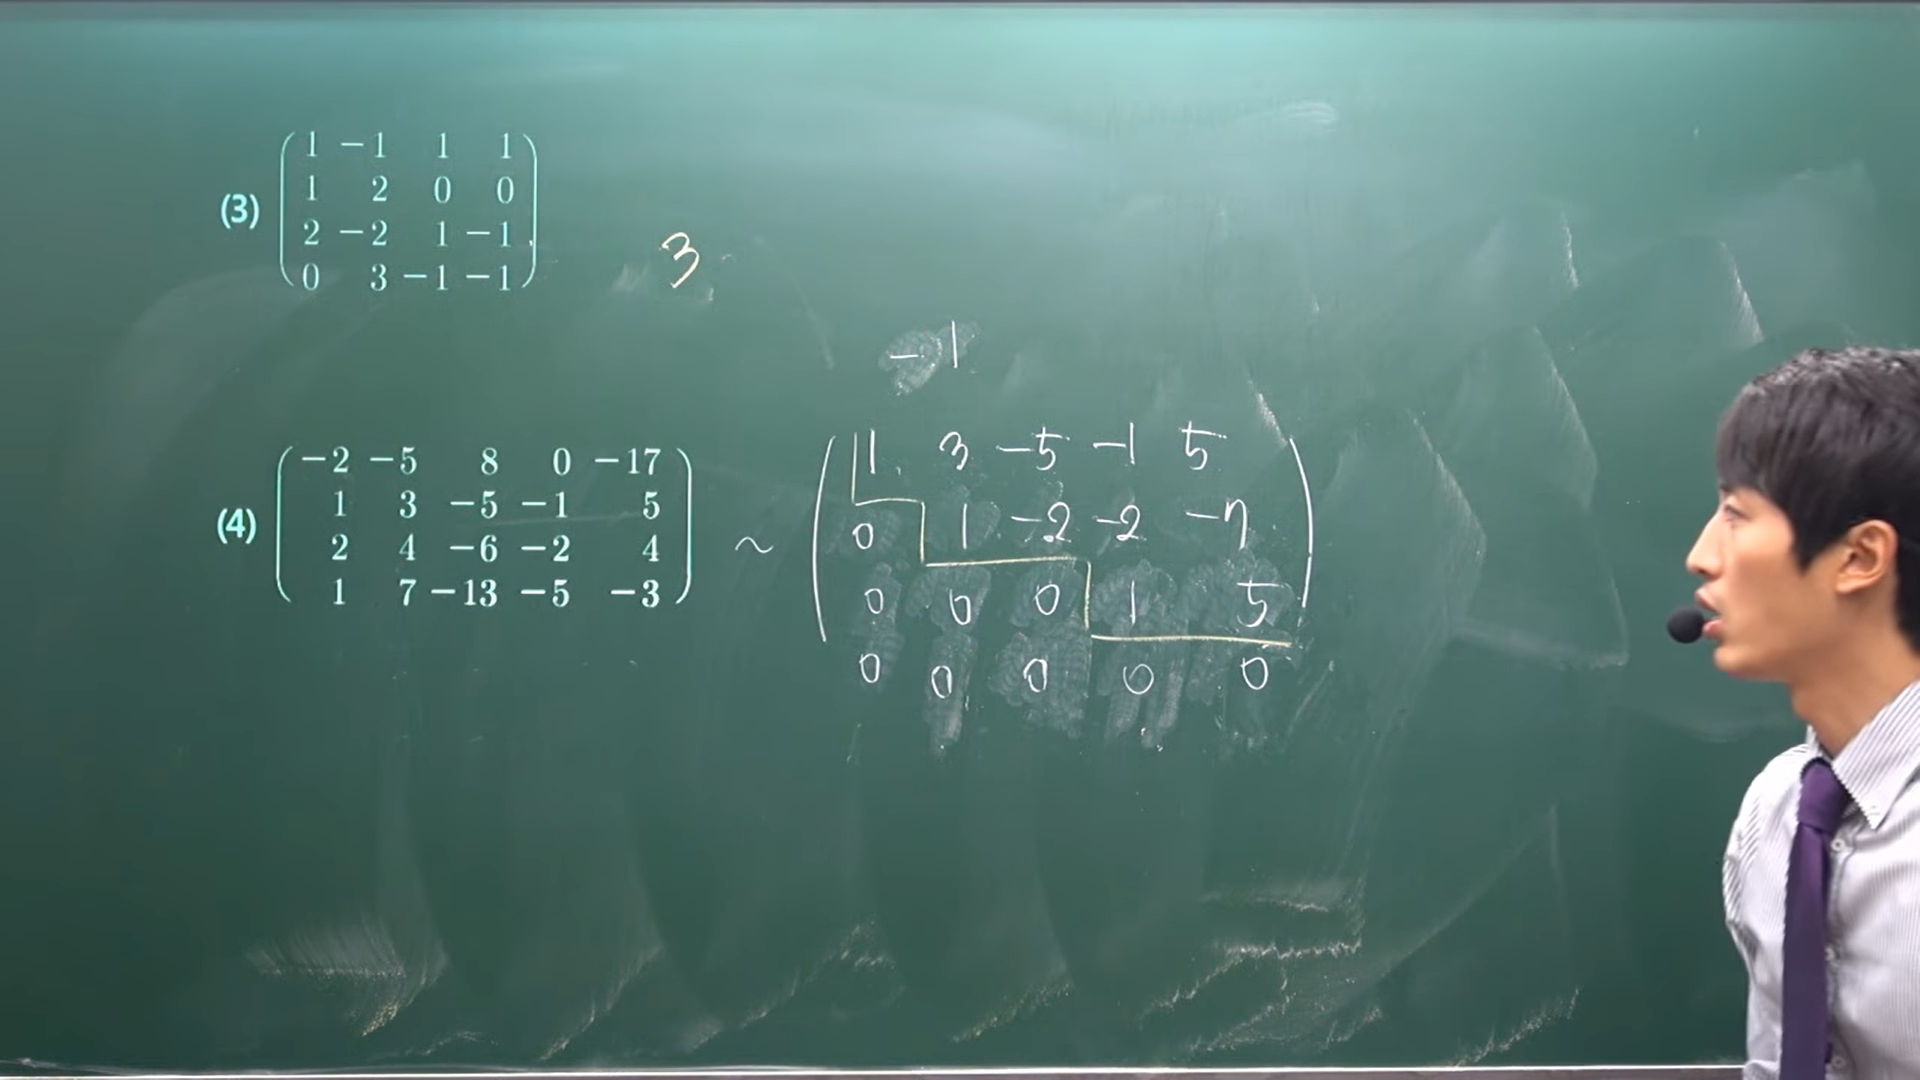 (3)
1 -1 1 1
1 2 0 0
2 -2 1 -1
0 3 -1 -1
3
-1
(4)
-2 -5 8 0 -17
1 3 -5 -1 5
2 4 -6 -2 4
1 7 -13 -5 -3
~
1 3 -5 -1 5
0 1 -2 -2 -7
0 0 0 1 5
0 0 0 0 0